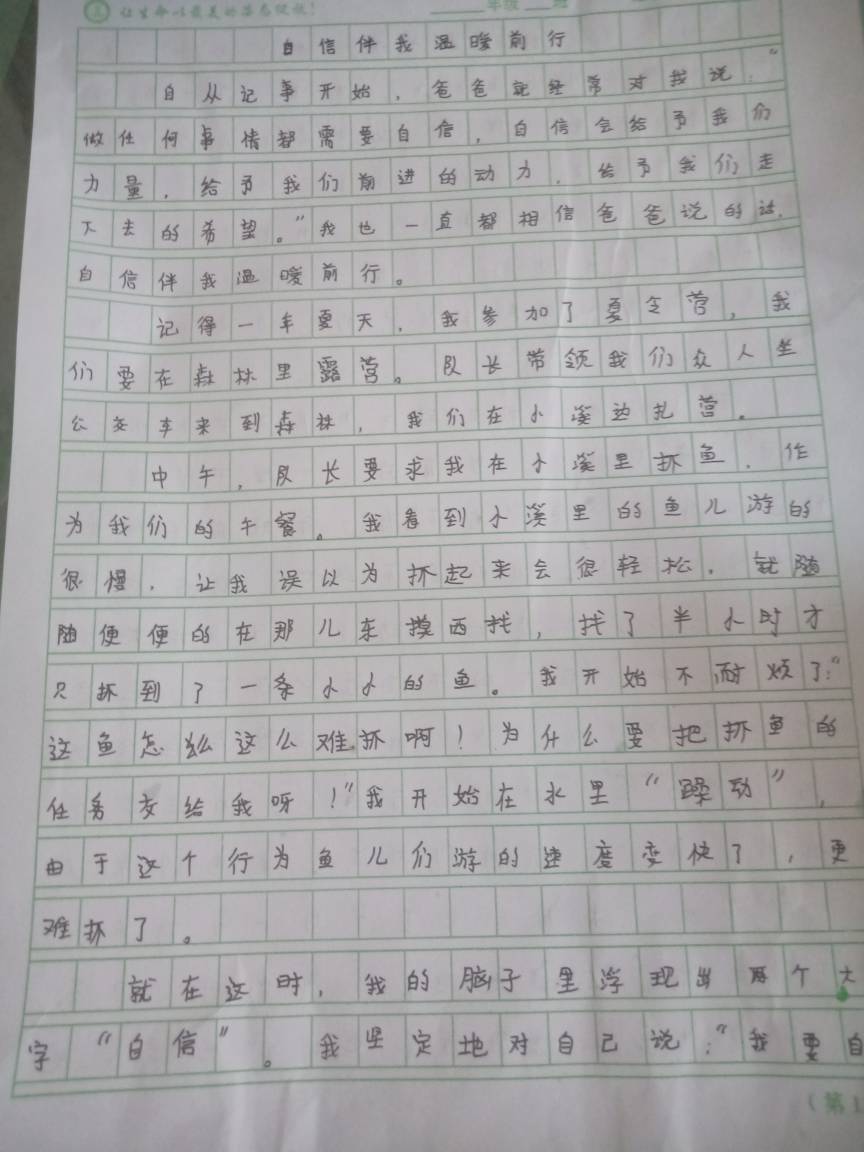 让生命以最美的姿态绽放！ 年级 班
自信伴我温暖前行
自从记事开始，爸爸就经常对我说：“
做任何事情都需要自信，自信会给予我们
力量，给予我们前进的动力，给予我们走
下去的希望。”我也一直都相信爸爸说的话，
自信伴我温暖前行。
记得一年夏天，我参加了夏令营，我
们要在森林里露营。队长带领我们众人坐
公交车来到森林，我们在小溪边扎营。
中午，队长要求我在小溪里抓鱼，作
为我们的午餐。我看到小溪里的鱼儿游的
很慢，让我误以为抓起来会很轻松，就随
随便便的在那儿东摸西找，找了半小时才
只抓到了一条小小的鱼。我开始不耐烦了：“
这鱼怎么这么难抓啊！为什么要把抓鱼的
任务交给我呀！”我开始在水里“躁动”，
由于这个行为鱼儿们游的速度变快了，更
难抓了。
就在这时，我的脑子里浮现出两个大
字“自信”。我坚定地对自己说：“我要自
（第1